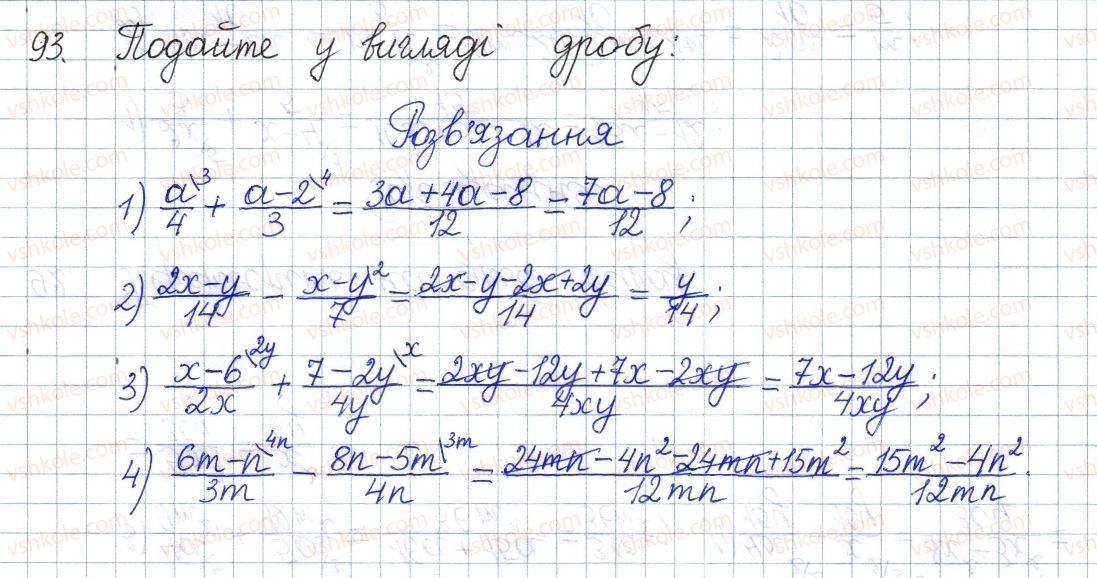 93. Подайте у вигляді дробу:
Розв'язання
1) a\3/4 + a-2\4/3 = 3a+4a-8/12 = 7a-8/12;
2) 2x-y/14 - x-y\2/7 = 2x-y-2x+2y/14 = y/14;
3) x-6\2y/2x + 7-2y\x/4y = 2xy-12y+7x-2xy/4xy = 7x-12y/4xy;
4) 6m-n\4n/3m - 8n-5m\3m/4n = 24mn-4n²-24mn+15m²/12mn = 15m²-4n²/12mn.